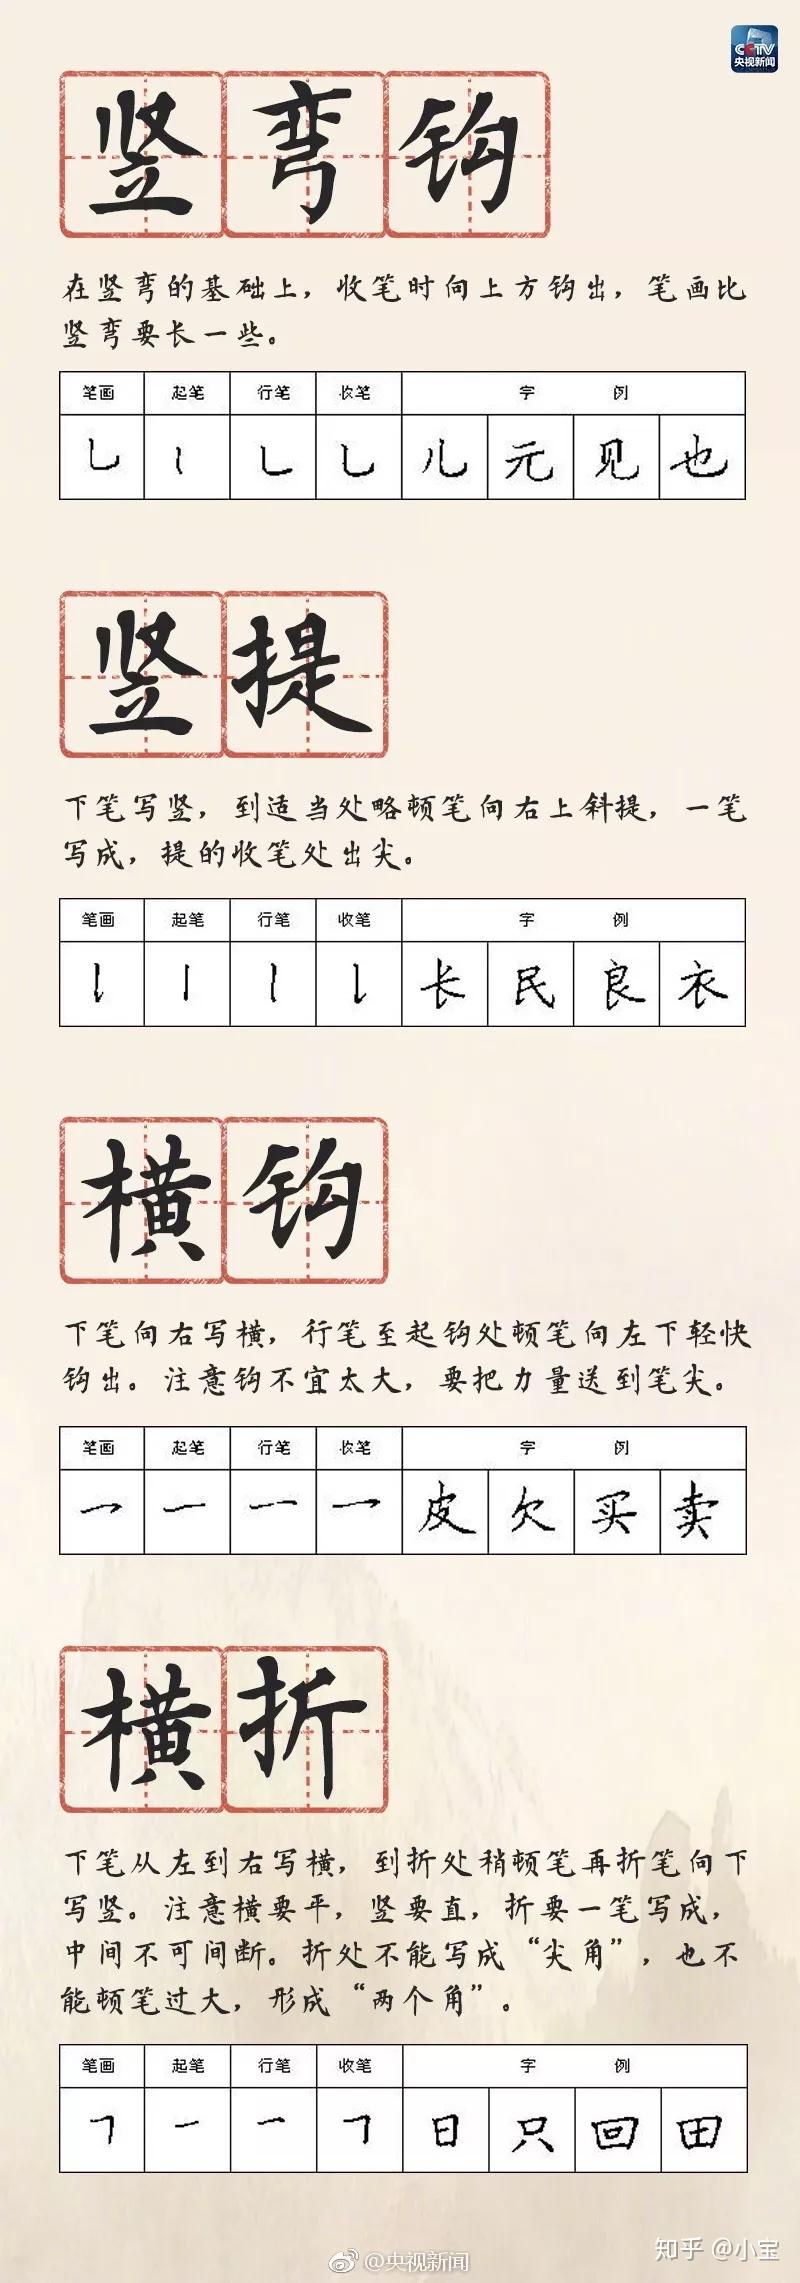 CCTV
央视新闻
竖弯钩
在竖弯的基础上，收笔时向上方钩出，笔画比
竖弯要长一些。
笔画 起笔 行笔 收笔 字 例
乚 丨 ㇄ 乚 儿 元 见 也
竖提
下笔写竖，到适当处略顿笔向右上斜提，一笔
写成，提的收笔处出尖。
笔画 起笔 行笔 收笔 字 例
𠄌 丨 丨 𠄌 长 民 良 衣
横钩
下笔向右写横，行笔至起钩处顿笔向左下轻快
钩出。注意钩不宜太大，要把力量送到笔尖。
笔画 起笔 行笔 收笔 字 例
乛 一 一 乛 皮 欠 买 卖
横折
下笔从左到右写横，到折处稍顿笔再折笔向下
写竖。注意横要平，竖要直，折要一笔写成，
中间不可间断。折处不能写成“尖角”，也不
能顿笔过大，形成“两个角”。
笔画 起笔 行笔 收笔 字 例
𠃍 一 一 𠃍 日 只 回 田
@央视新闻
知乎 @小宝